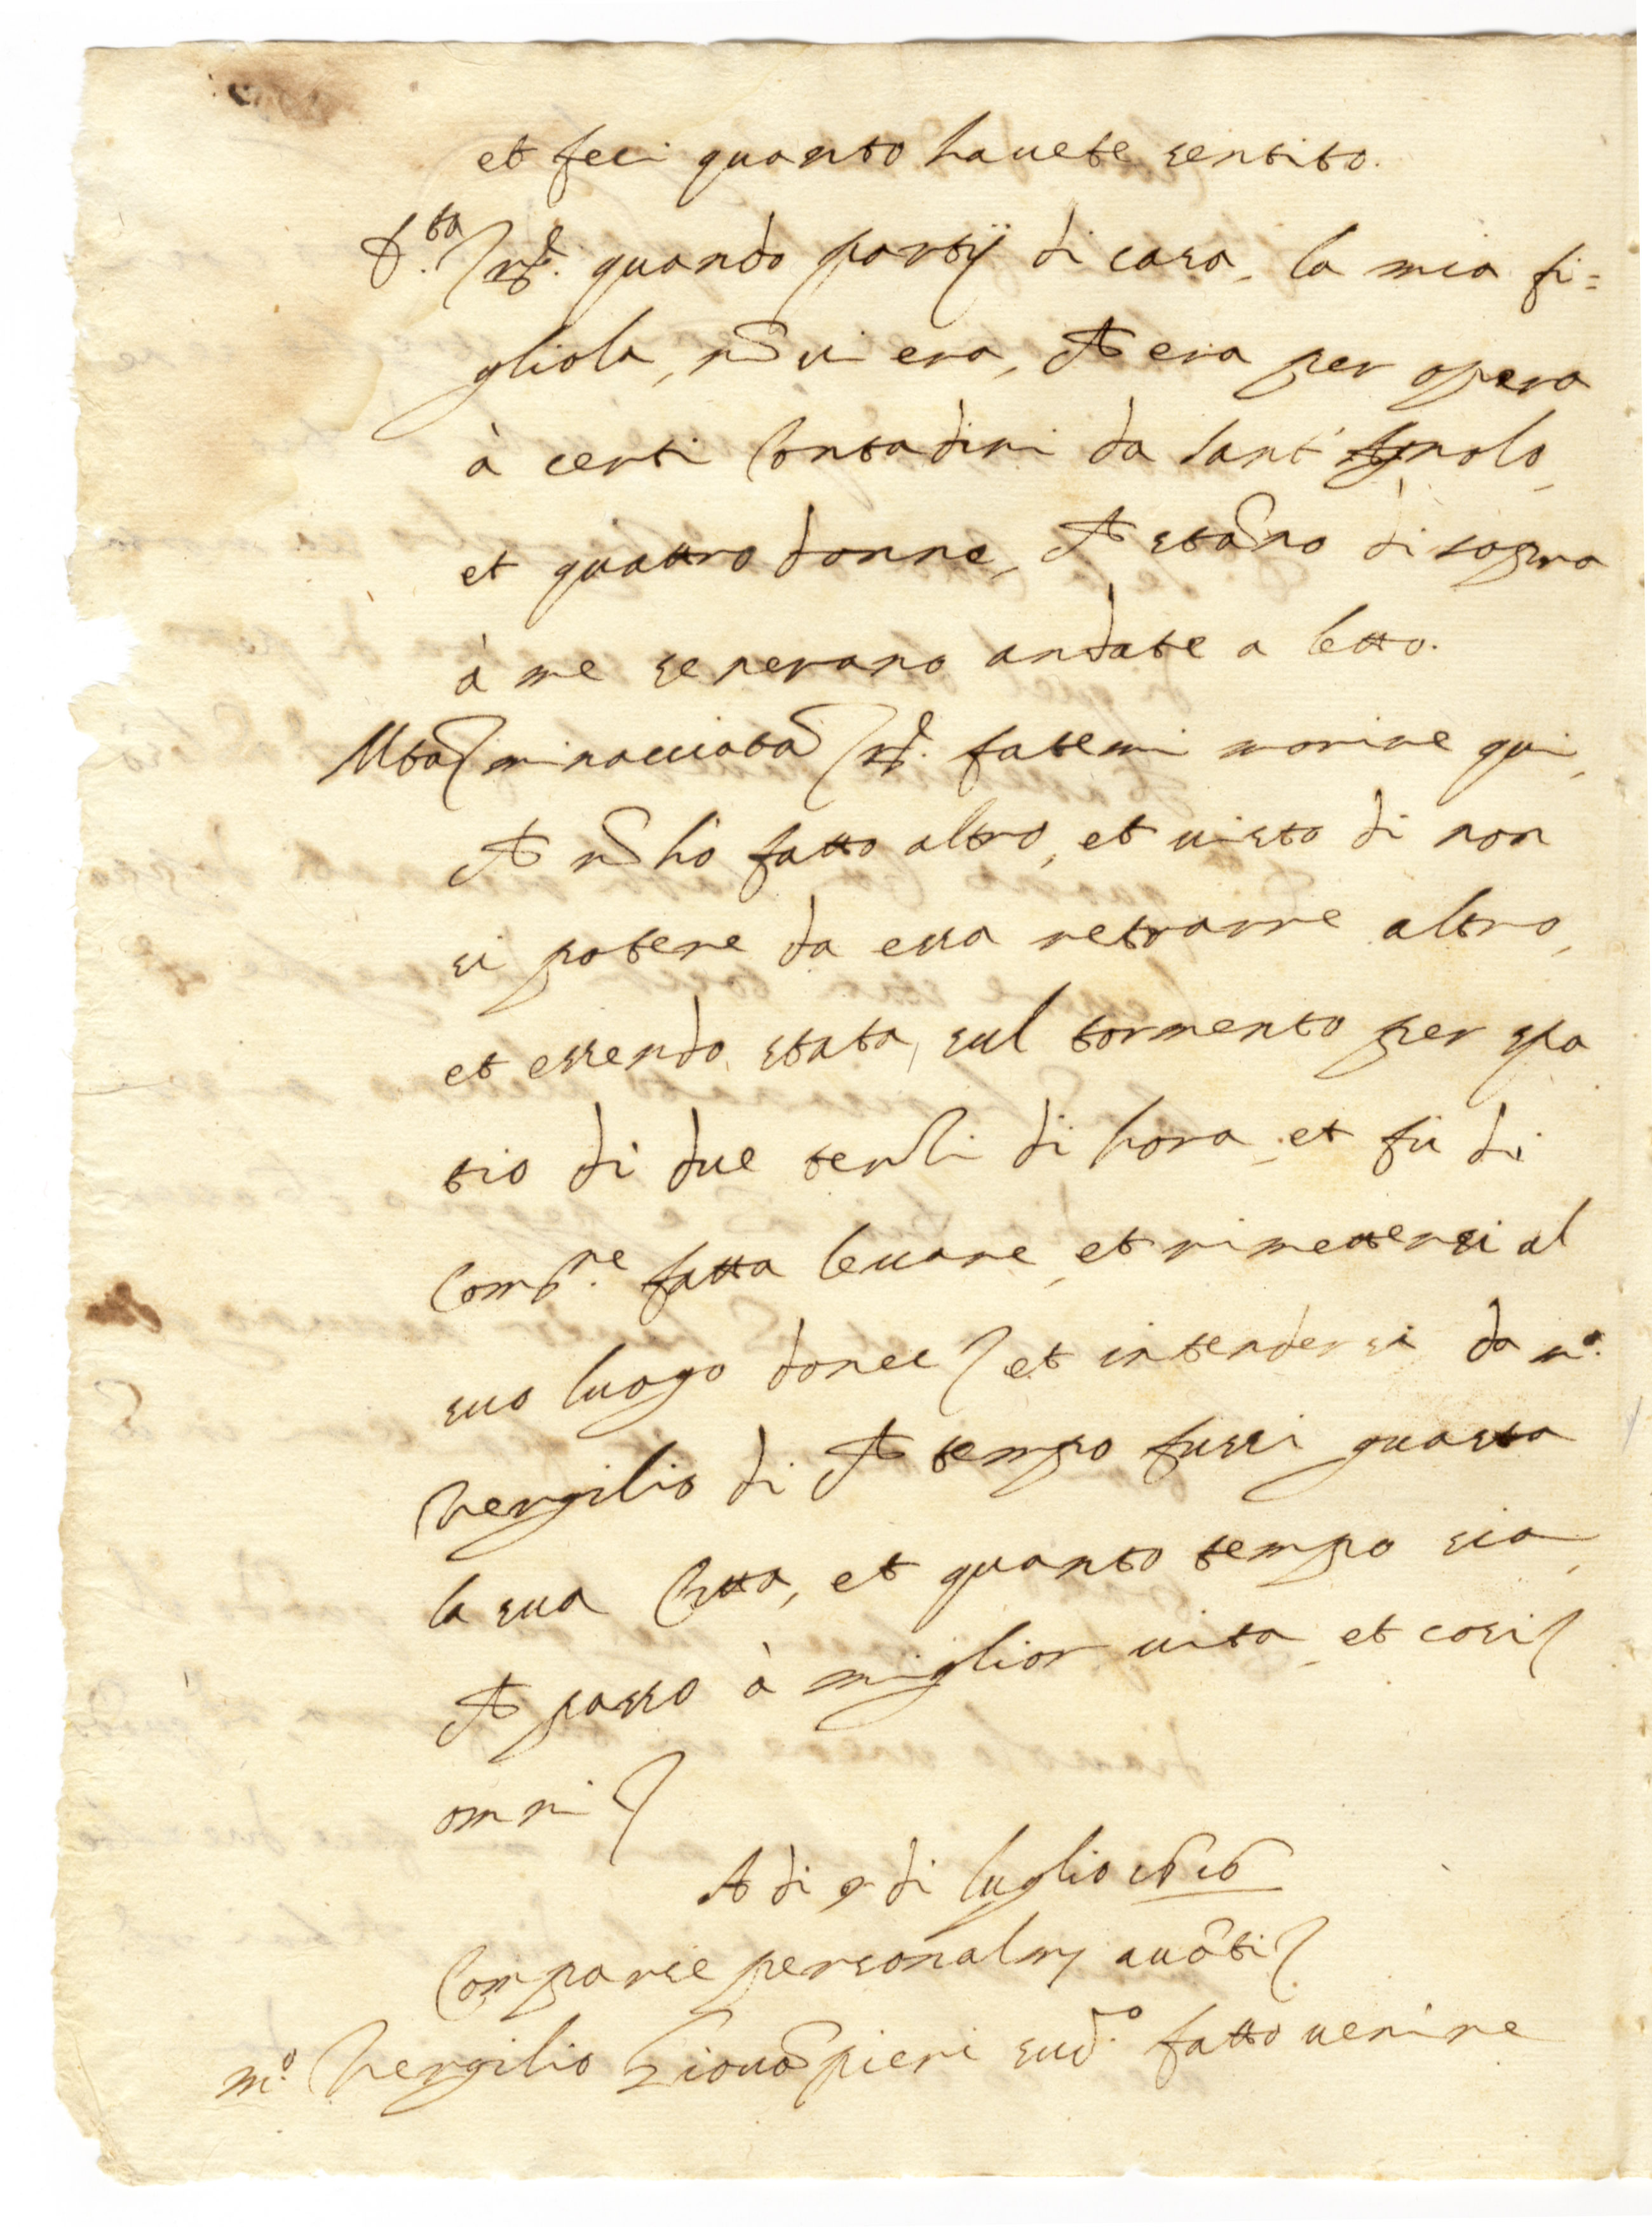 et feci quanto havete sentito.
D.ta rs.de quando partij di casa, la mia fi=
gliola, nō vi era, che era per opera
à certi Contadini da Sant' Agnolo,
et quattro donne, che stāno di sopra
à me se nerano andate a letto.
Mta minacciata rs.de fatemi morire qui,
che nō hò fatto altro, et visto di non
si potere da essa retrarre altro,
et essendo stata, sul tormento per spa
tio di due terzi di hora, et fù di
Com.ne fatta levare, et rimettersi al
suo luogo donec et intendersi da m.o
Vergilio di che tempo fussi guasta
la sua Putta, et quanto tempo sia,
che passo à miglior vita, et cosi
omni
A di 9 di luglio 1616
Comparse personalm. avāti
m.o Vergilio Giovāpieri sud.o fatto venire